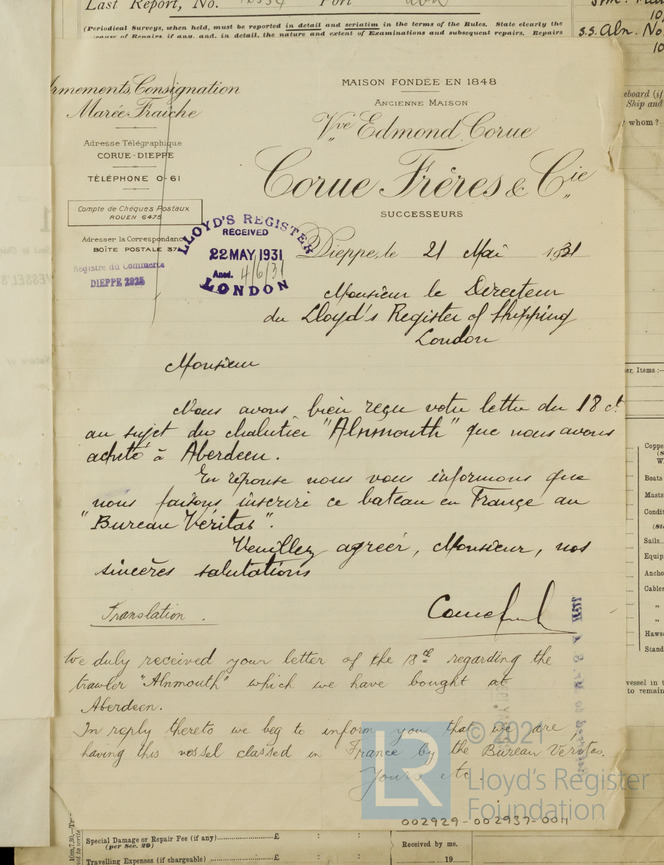 Last Report, No.
Port
(Periodical Surveys, when held, must be reported in detail and seriatim in the terms of the Rules. State clearly the
of Repairs if any, and, in detail, the nature and extent of Examinations and subsequent repairs. Repairs
s.s. Aln. No
10
Consignation
Marée Fraîche
Adresse Télégraphique
CORUE-DIEPPE
TÉLÉPHONE 0-61
Compte de Chèques Postaux
ROUEN 6475
Adresser la Correspondance
BOÎTE POSTALE 37
Registre du Commerce
DIEPPE 2925
MAISON FONDÉE EN 1848
ANCIENNE MAISON
Vve Edmond Corue
Corue Frères & Cie
SUCCESSEURS
LLOYD'S REGISTER
RECEIVED
22 MAY 1931
Ansd. 4/6/31
LONDON
Dieppe, le 21 Mai 1931
Monsieur le Directeur
du Lloyd's Register of Shipping
London
Monsieur
Nous avons bien reçu votre lettre du 18 ct
au sujet du chalutier "Alnmouth" que nous avons
acheté à Aberdeen.
En réponse nous vous informons que
nous faisons inscrire ce bateau en France au
"Bureau Véritas".
Veuillez agréer, Monsieur, nos
sincères salutations
Translation.
We duly received your letter of the 18th regarding the
trawler "Alnmouth" which we have bought at
Aberdeen.
In reply thereto we beg to inform you that we are
having this vessel classed in France by the Bureau Veritas.
Yours etc.
LR
© 2021
Lloyd's Register
Foundation
002929-002937-0011
Special Damage or Repair Fee (if any) £ : :
(per Sec. 29)
Travelling Expenses (if chargeable) £ : :
Received by me.
19